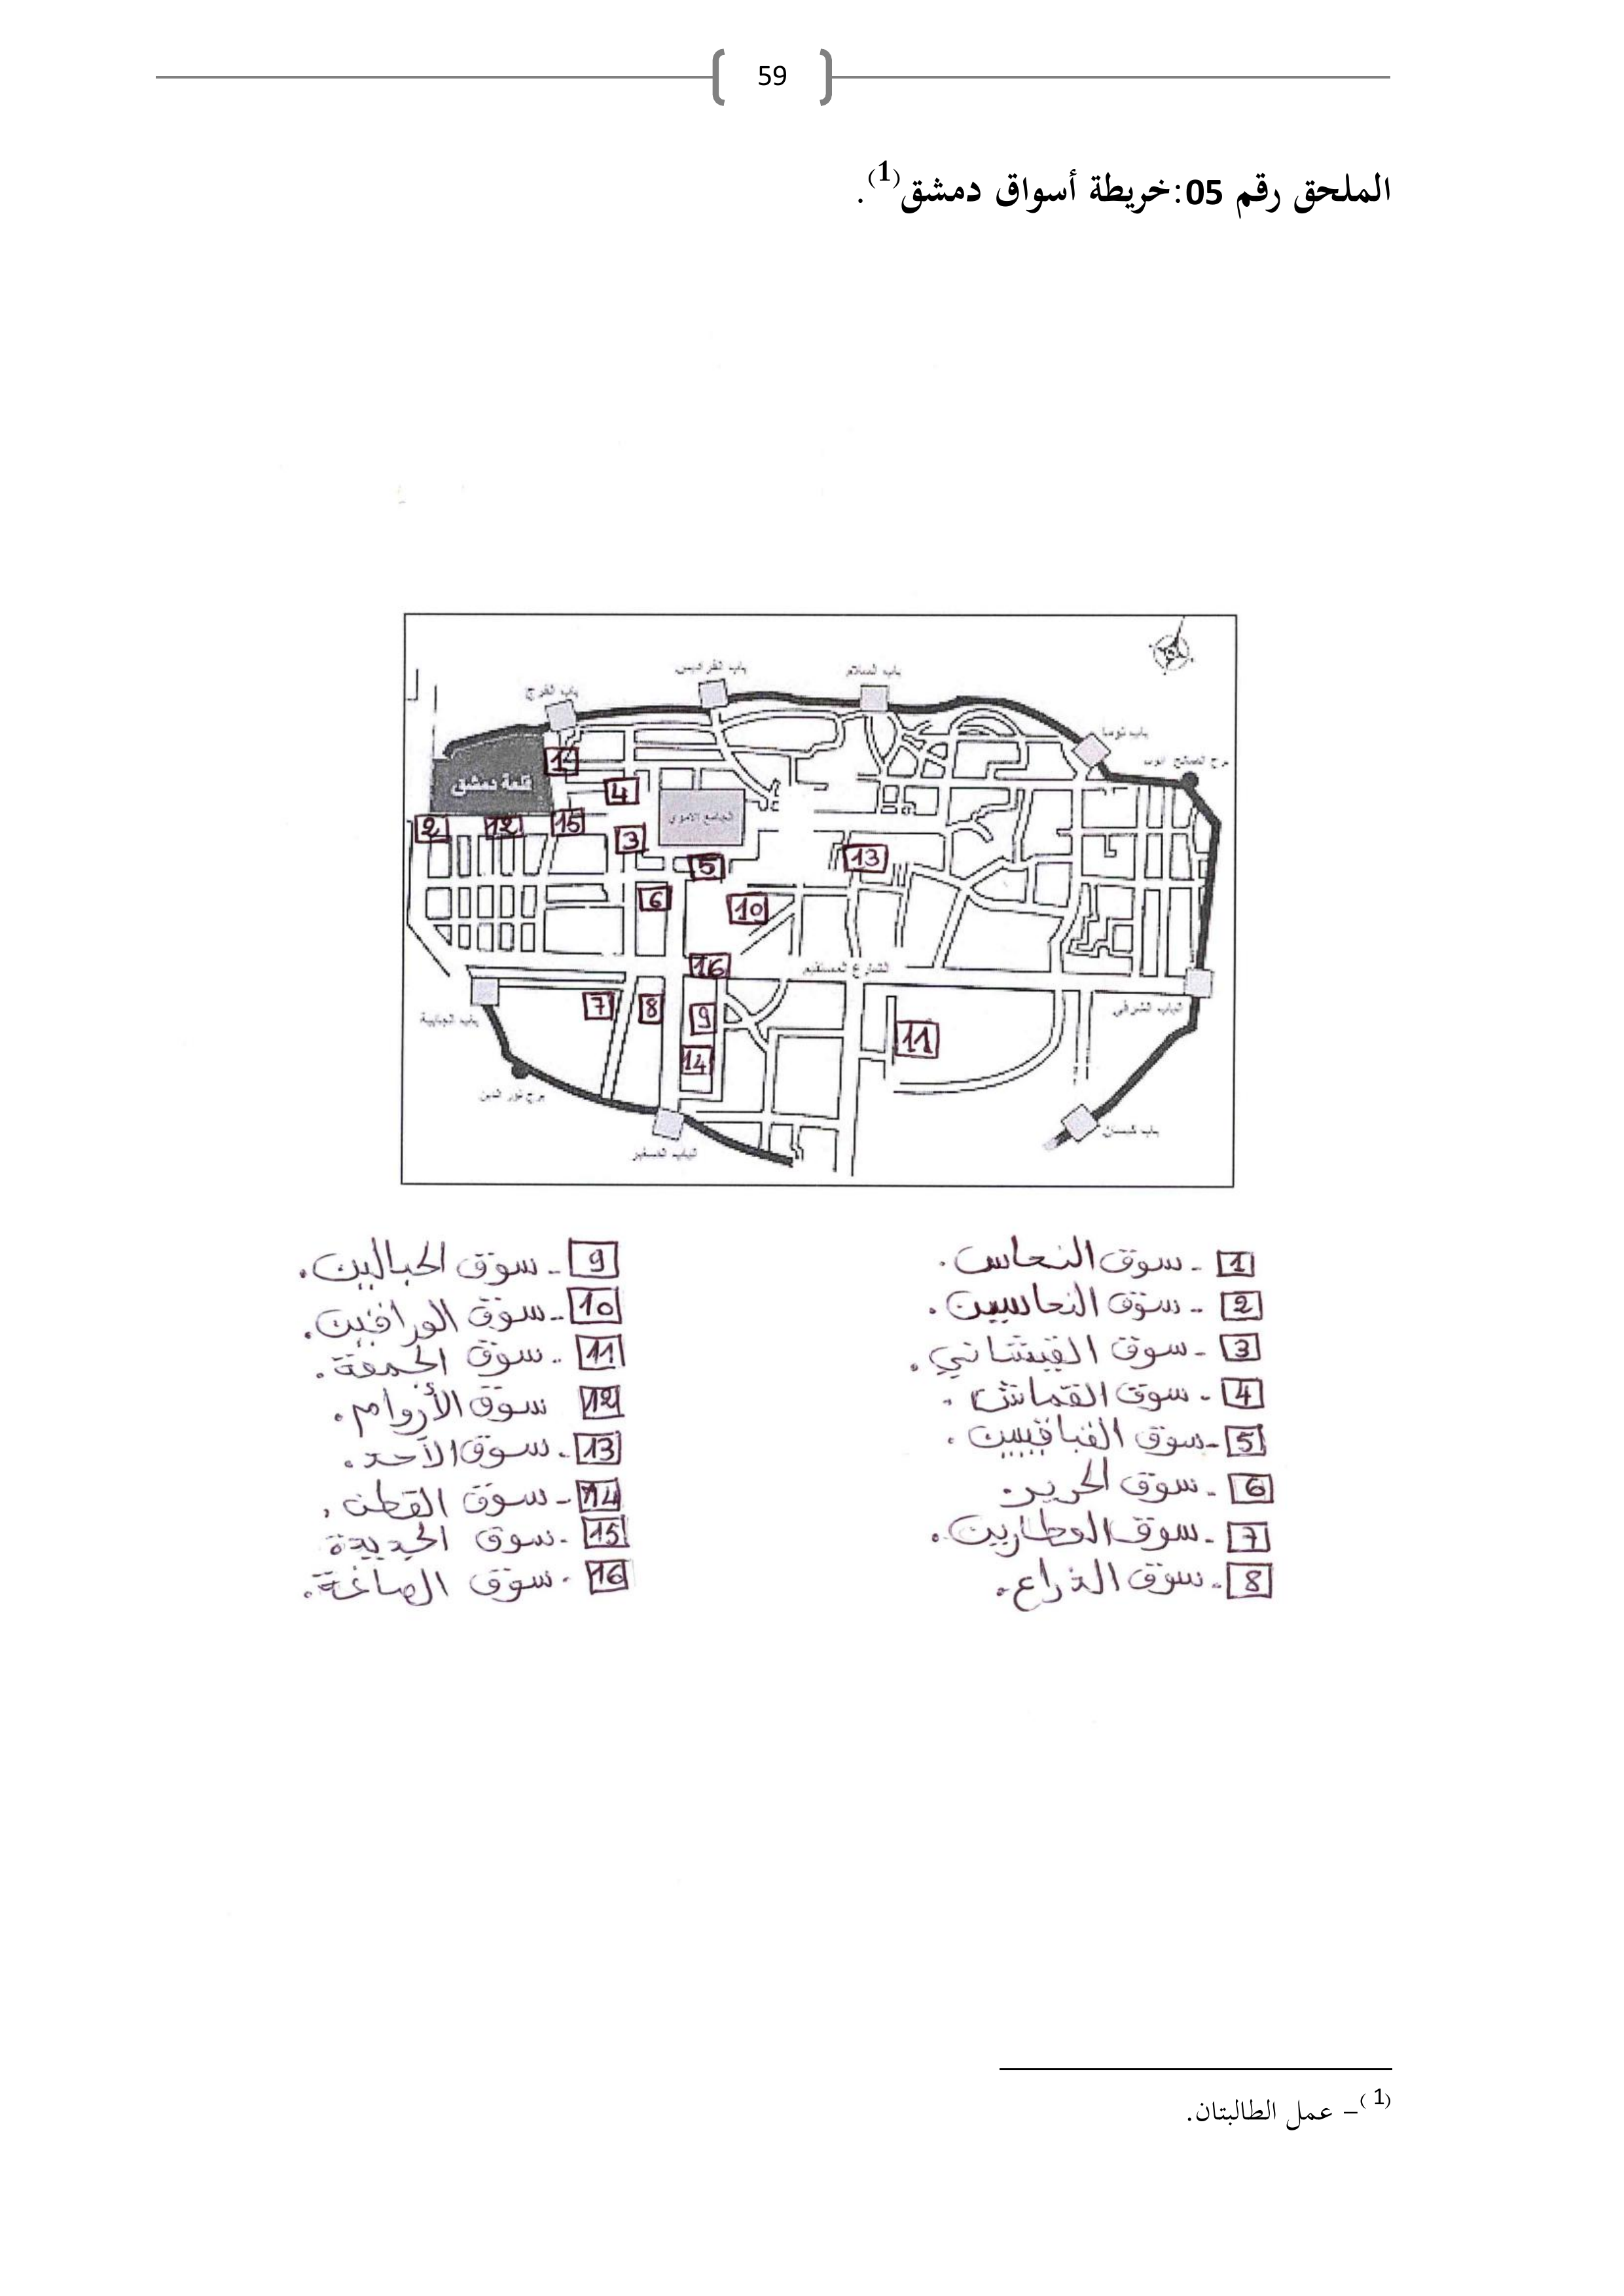 59
الملحق رقم 05:خريطة أسواق دمشق(1).
باب الفراديس
باب السلام
باب الفرج
باب توما
برج الصالح أيوب
قلعة دمشق
1
4
الجامع الاموي
2
12
15
3
5
13
6
10
16
الشارع المستقيم
7
8
9
الباب الشرقي
باب الجابية
11
14
برج نور الدين
باب كيسان
الباب الصغير
1 - سوق النحاس.
2 - سوق النحاسيين.
3 - سوق القيشاني.
4 - سوق القماش.
5 - سوق القباقبيين.
6 - سوق الحرير.
7 - سوق العطارين.
8 - سوق الذراع.
9 - سوق الحبالين.
10 - سوق الوراقين.
11 - سوق الجمعة.
12 سوق الأروام.
13 - سوق الأحد.
14 - سوق القطن.
15 - سوق الجديدة
16 - سوق الصاغة.
(1)– عمل الطالبتان.